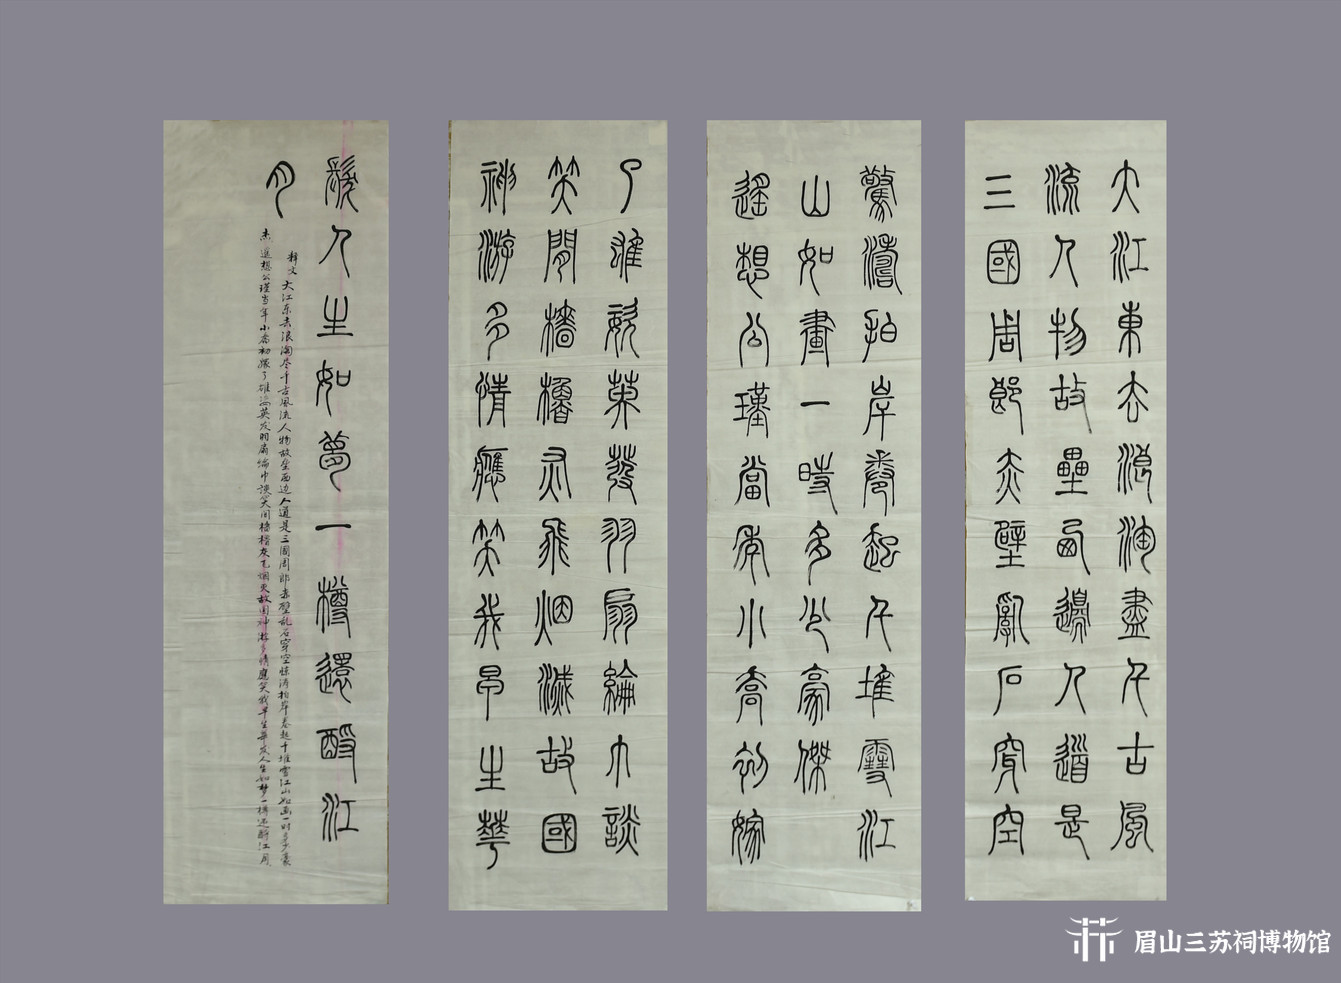 大江東去浪淘盡千古風
流人物故壘西邊人道是
三國周郎赤壁亂石穿空
驚濤拍岸卷起千堆雪江
山如畫一時多少豪傑
遙想公瑾當年小喬初嫁
了雄姿英發羽扇綸巾談
笑間檣櫓灰飛烟滅故國
神游多情應笑我早生華
髮人生如夢一樽還酹江
月
释文 大江东去浪淘尽千古风流人物故垒西边人道是三国周郎赤壁乱石穿空惊涛拍岸卷起千堆雪江山如画一时多少豪
杰遥想公瑾当年小乔初嫁了雄姿英发羽扇纶巾谈笑间樯橹灰飞烟灭故国神游多情應笑我早生华发人生如梦一樽还酹江月
眉山三苏祠博物馆